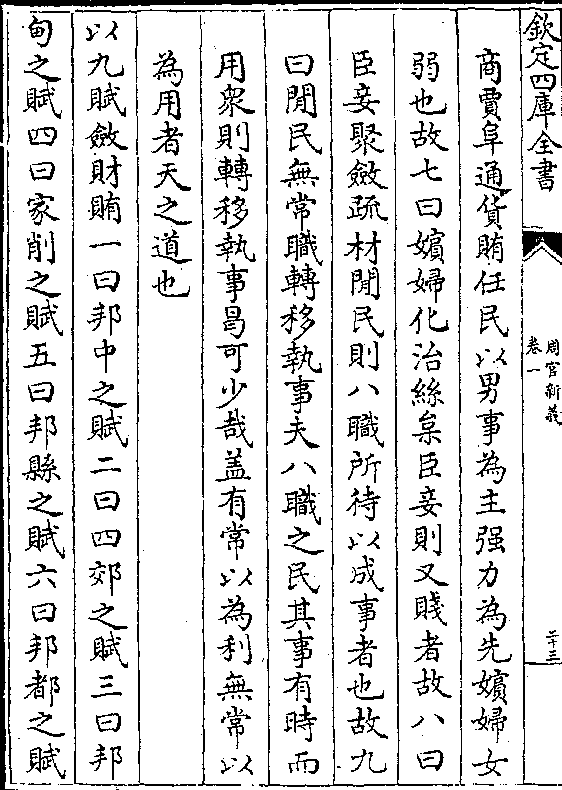 欽定四庫全書
周官新義
卷一
二十三
商賈阜通貨賄任民以男事為主强力為先嬪婦女
弱也故七曰嬪婦化治絲枲臣妾則又賤者故八曰
臣妾聚斂疏材閒民則八職所待以成事者也故九
曰閒民無常職轉移執事夫八職之民其事有時而
用衆則轉移執事曷可少哉盖有常以為利無常以
為用者天之道也
以九賦斂財賄一曰邦中之賦二曰四郊之賦三曰邦
甸之賦四曰家削之賦五曰邦縣之賦六曰邦都之賦